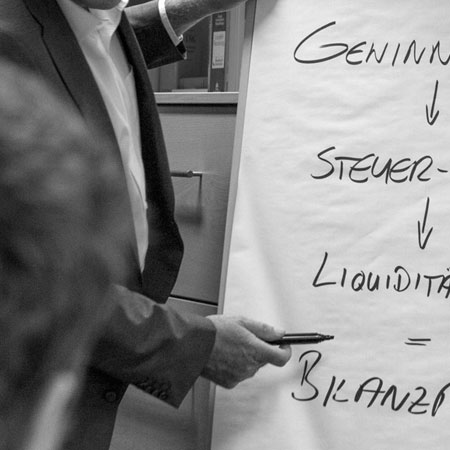 GEWINN
↓
STEUER-
↓
LIQUIDITÄ
=
BILANZP